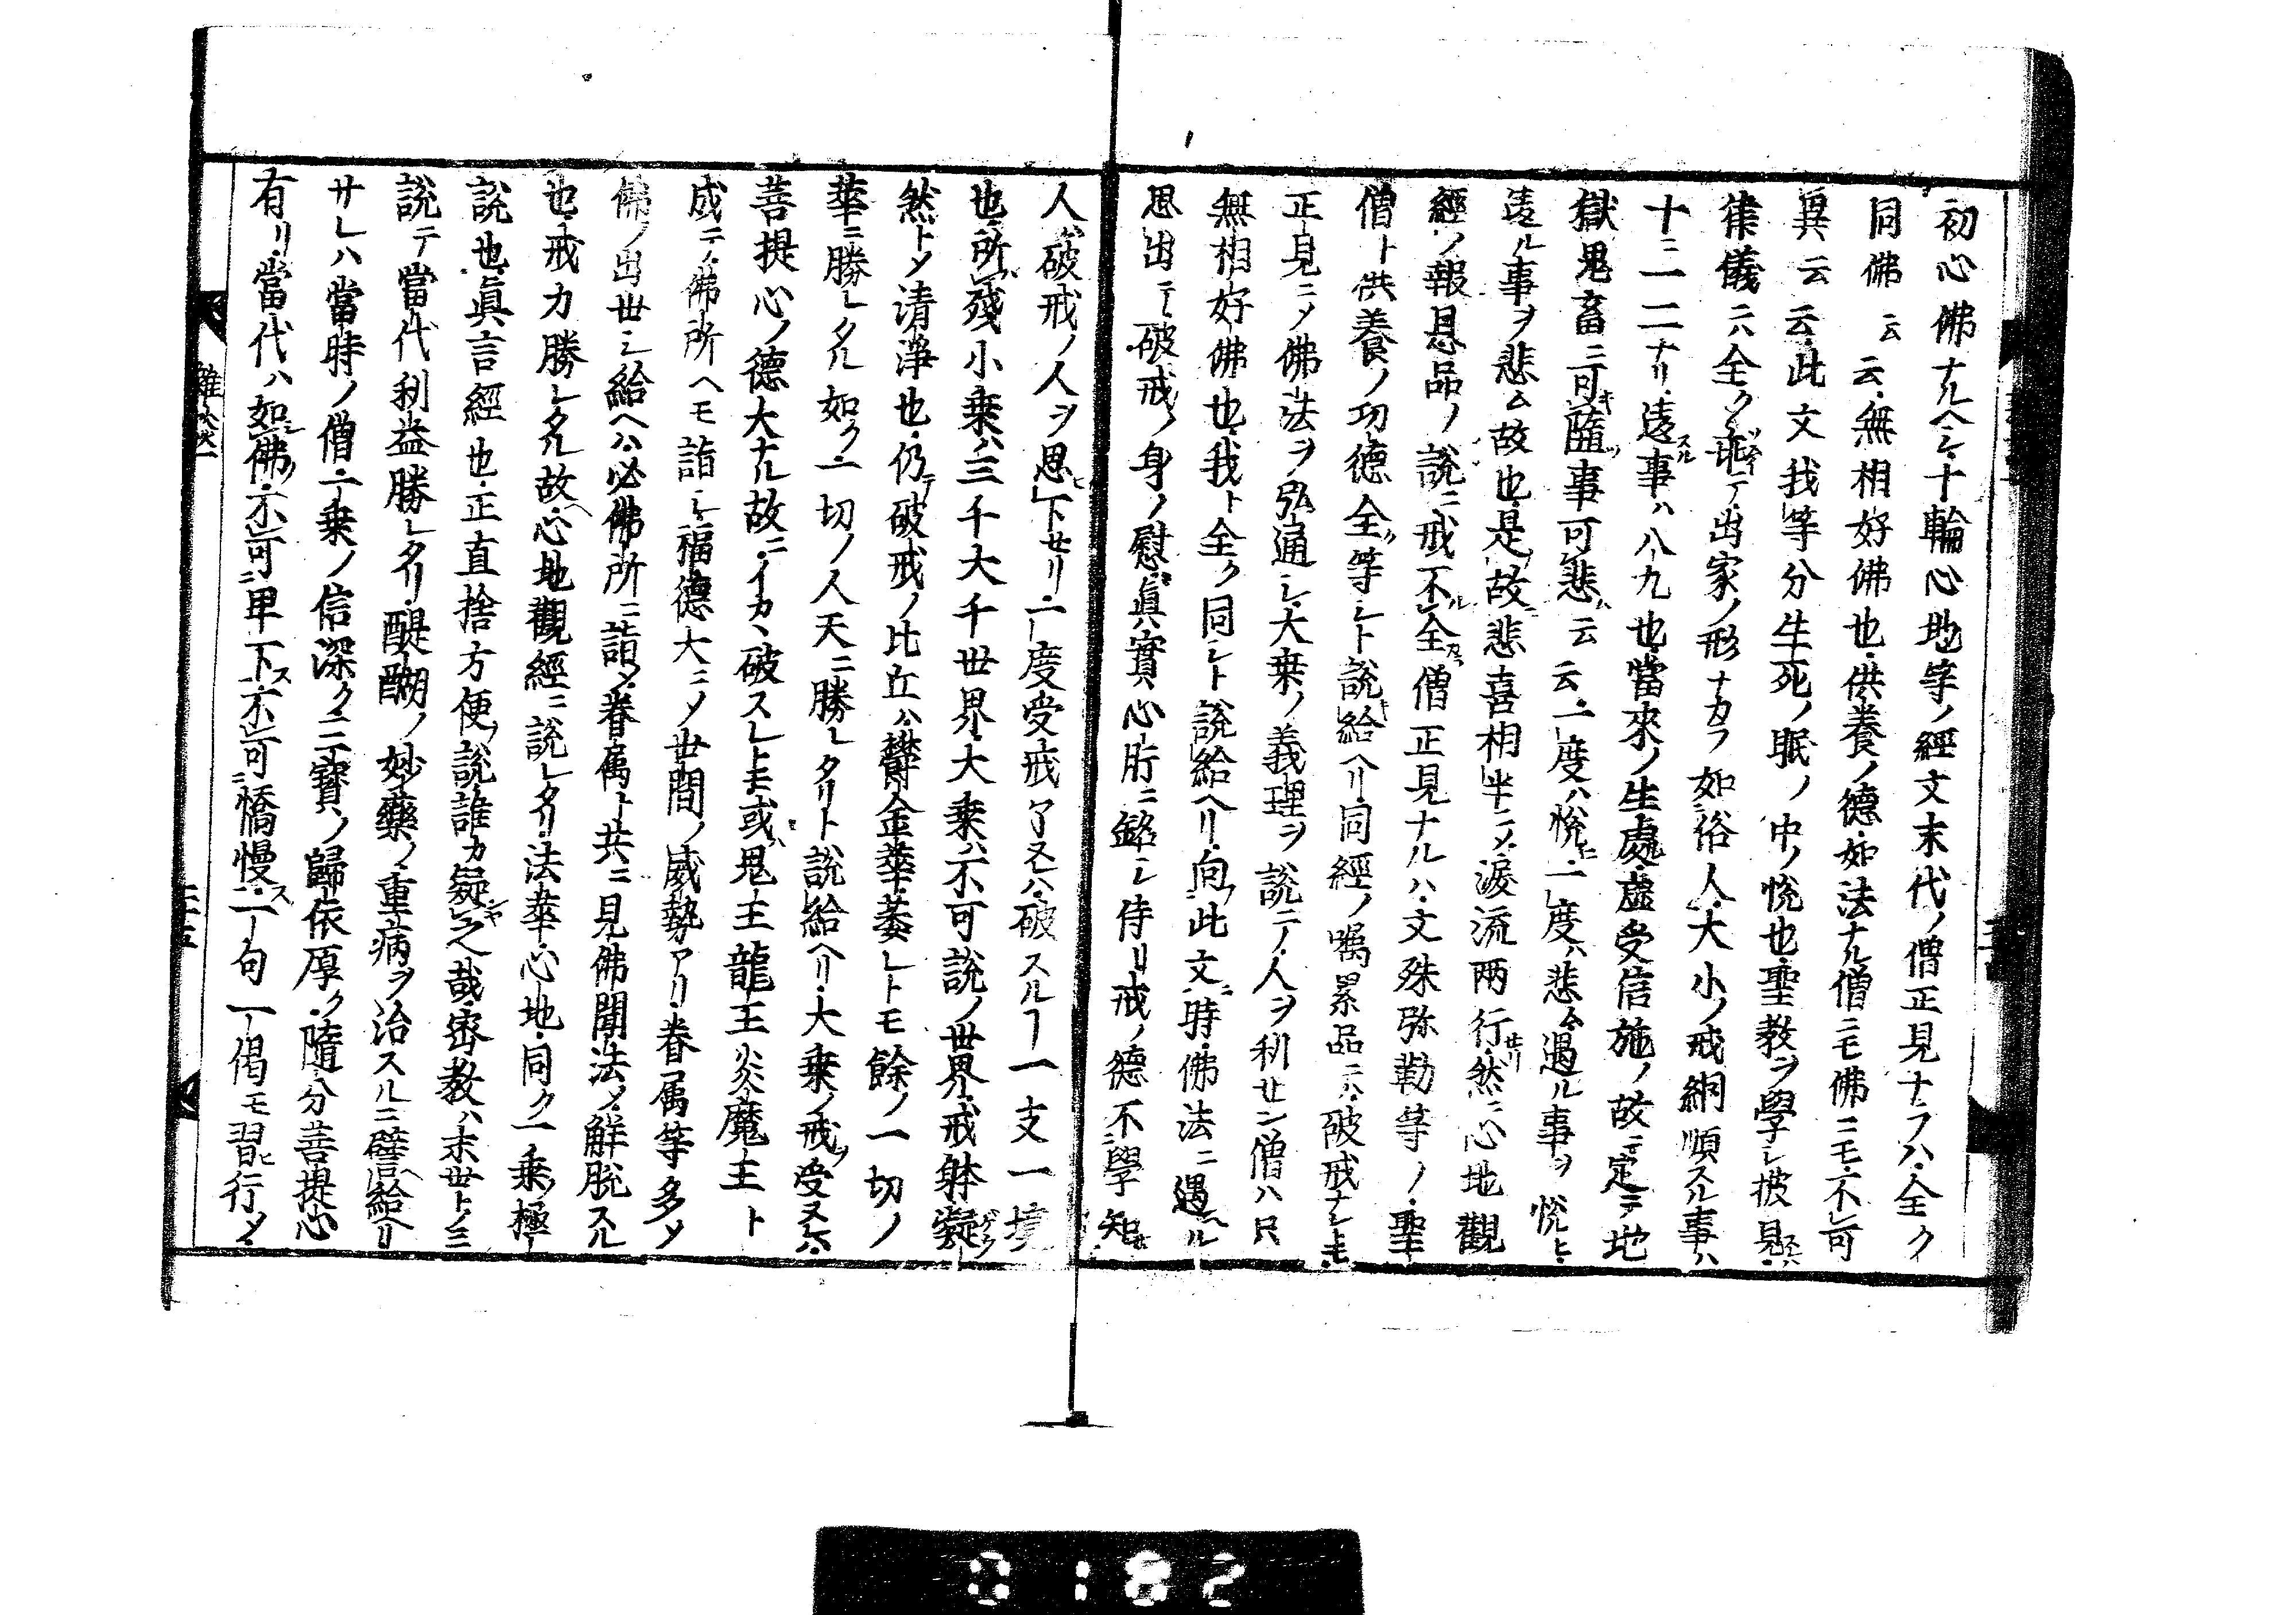 初心佛ナルヘシ十輪心地等ノ經文末代ノ僧正見ナラハ全ク
同佛云云無相好佛也供養ノ德如法ナル僧ニモ佛ニモ不可
異云云此文我等分生死ノ眠ノ中ノ悅也聖教ヲ學シ披見
律儀ニハ全ク テ出家ノ形ナカラ如俗人大小ノ戒網順スル事ハ
十ニ一二ナリ遠事ハ八九也當來ノ生處虚受信施ノ故ニ定テ地
獄鬼畜ニ可隨事可悲云云一度ハ悅一度ハ悲ム遇ル事ヲ悅ヒ
遠ル事ヲ悲ム故也是故悲喜相半ニメ淚流兩行然ニ心地觀
經ノ報恩品ノ說ニ戒不全僧正見ナルハ文殊弥勒等ノ聖
僧ト供養ノ功德全等シト說給ヘリ同經ノ囑累品ニハ破戒ナレトモ
正見ニメ佛法ヲ弘通シ大乘ノ義理ヲ說テ人ヲ利サン僧ハ只
無相好佛也我ト全ク同シト說給ヘリ向此文時佛法ニ遇ヘル
思出ニテ破戒ノ身ノ慰眞實心肝ニ銘シ侍リ戒ノ德不學知
人破戒ノ人ヲ思下セリ一度受戒了ヌレハ破スルヿ一支一境
也所殘小乘ハ三千大千世界大乘ハ不可說ノ世界戒躰凝
然トメ清淨也仍破戒ノ比丘ハ欝金華萎レトモ餘ノ一切ノ
華ニ勝レタル如ク一切ノ人天ニ勝レタリト說給ヘリ大乘ノ戒受ヌレハ
菩提心ノ德大ナル故ニイカニ破スレトモ或鬼王龍王炎魔王ト
成テ佛所ヘモ詣シ福德大ニメ世間ノ威勢アリ眷属等多メ
佛ノ出世シ給ヘハ必佛所ニ詣メ眷属ト共ニ見佛聞法メ解脫スル
也戒力勝レタル故心地觀經ニ說レタリ法華心地同ク一乘ノ極
說也眞言經也正直捨方便說誰カ疑之哉密教ハ末世トノミ
說テ當代利益勝レタリ醍醐ノ妙藥ノ重病ヲ治スルニ譬給ヘリ
サレハ當時ノ僧一乘ノ信深ク三寶ノ歸依厚ク隨分菩提心
有リ當代ハ如佛不可卑下ス不可憍慢ス一句一偈モ習ヒ行メ